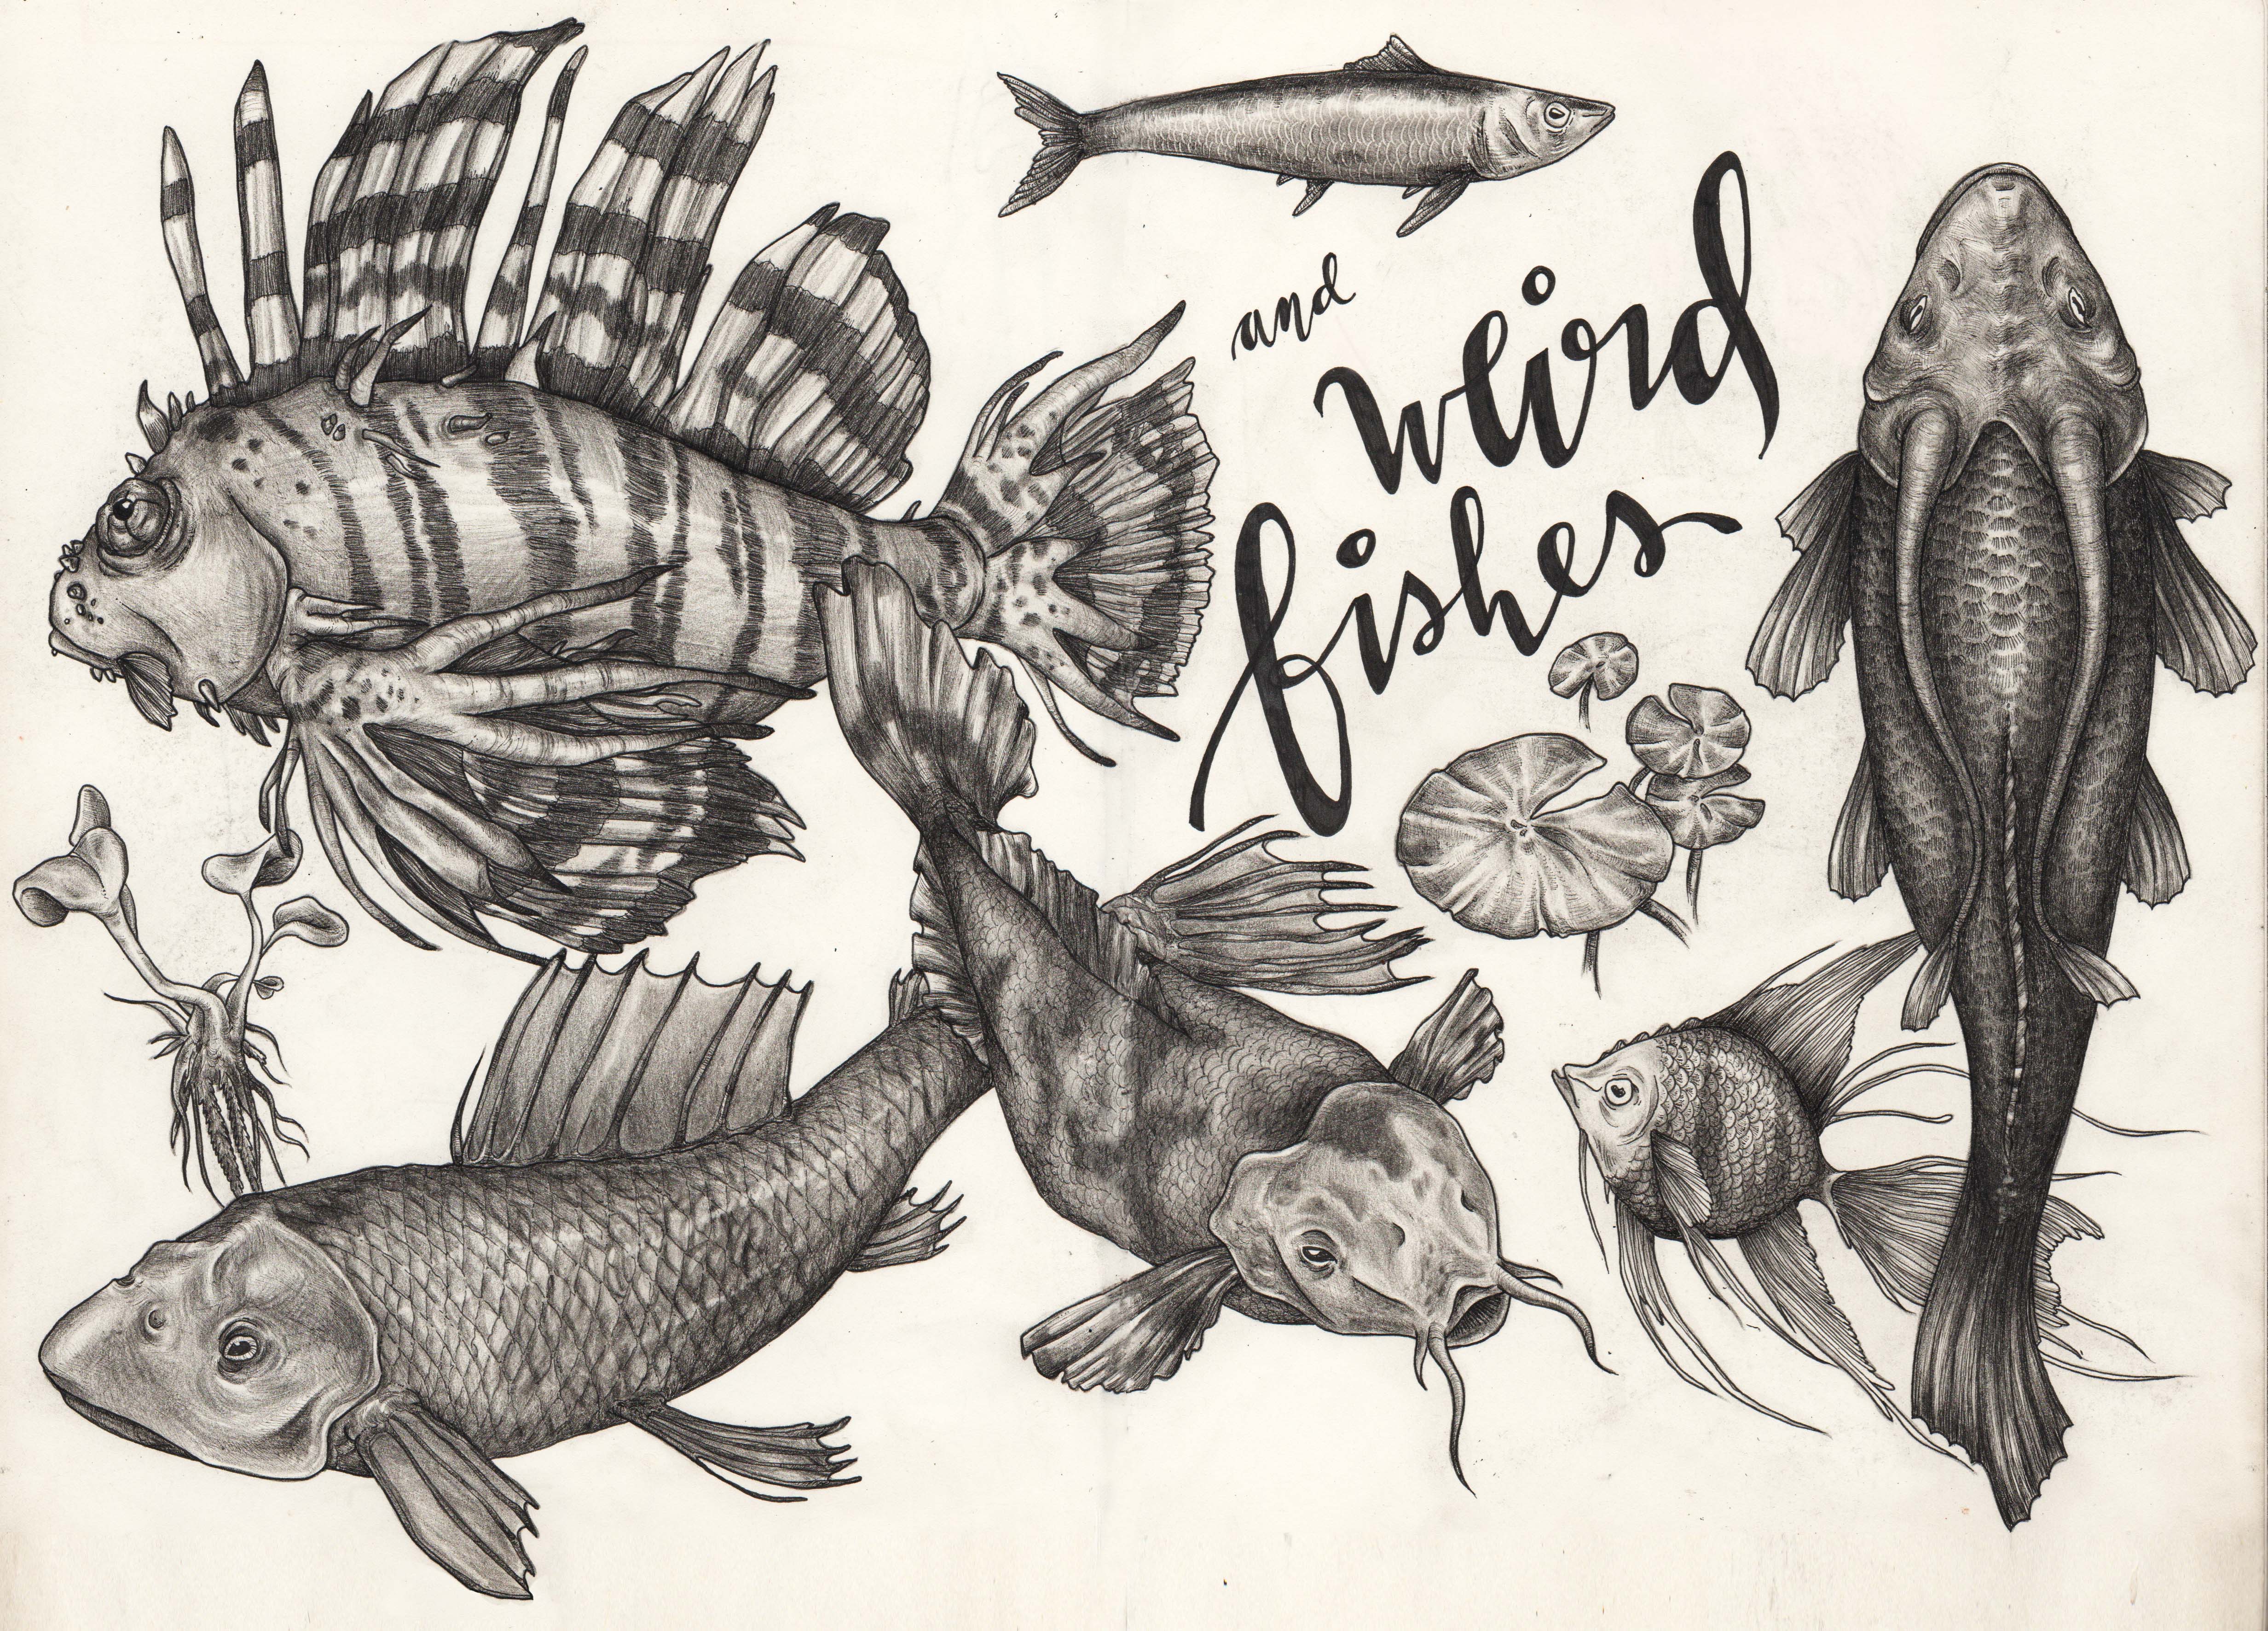 and
weird
fishes